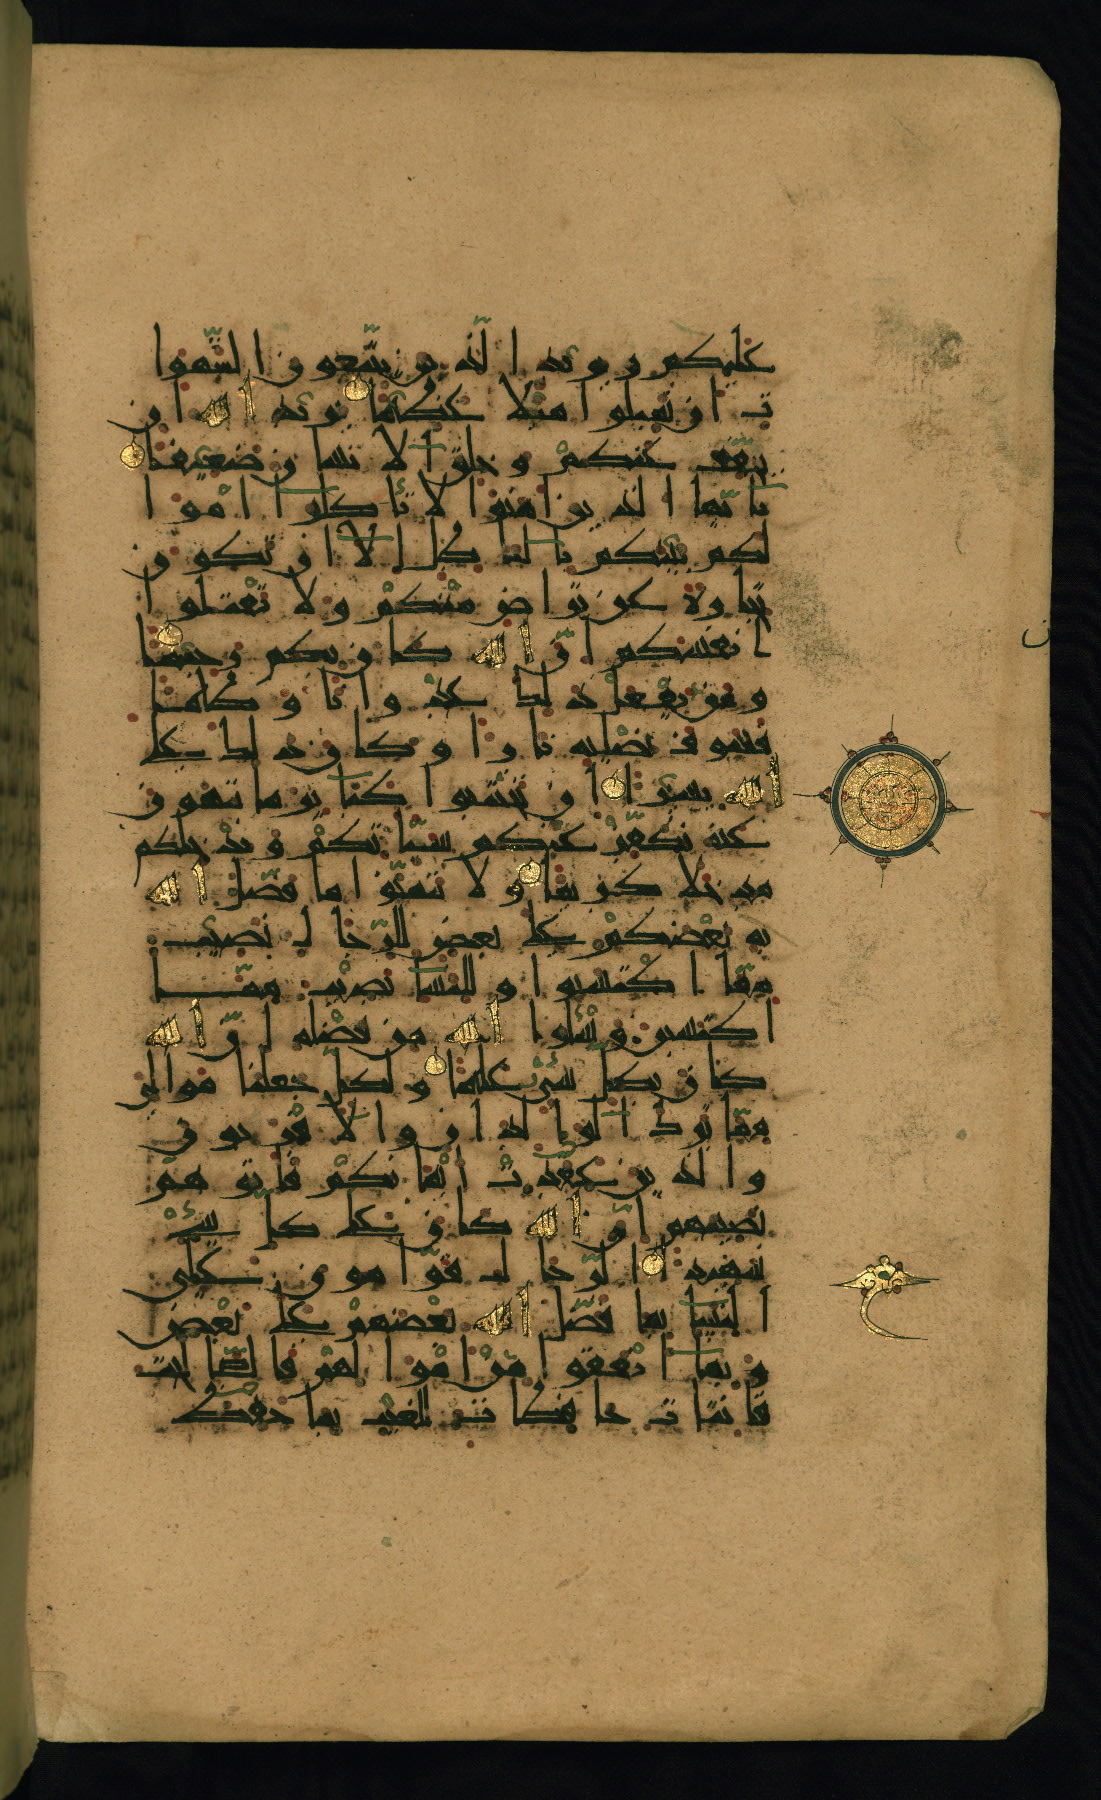 عليكم ويريد الذين يتبعون الشهوا
ت ان تميلوا ميلا عظيما يريد الله ان
يخفف عنكم وخلق الانسان ضعيفا
يايها الذين امنوا لا تاكلوا اموا
لكم بينكم بالباطل الا ان تكون
تجارة عن تراض منكم ولا تقتلوا
انفسكم ان الله كان بكم رحيما
ومن يفعل ذلك عدوانا وظلما
فسوف نصليه نارا وكان ذلك على
الله يسيرا ان تجتنبوا كبائر ما تنهون
عنه نكفر عنكم سيئاتكم وندخلكم
مدخلا كريما ولا تتمنوا ما فضل الله
به بعضكم على بعض للرجال نصيب
مما اكتسبوا وللنسا نصيب مما
اكتسبن وسئلوا الله من فضله ان الله
كان بكل شيء عليما ولكل جعلنا موالي
مما ترك الوالدان والاقربون
والذين عقدت ايمانكم فاتوهم
نصيبهم ان الله كان على كل شيء
شهيدا الرجال قوامون على
النسا بما فضل الله بعضهم على بعض
وبما انفقوا من اموالهم فالصالحات
قانتات حافظات للغيب بما حفظ